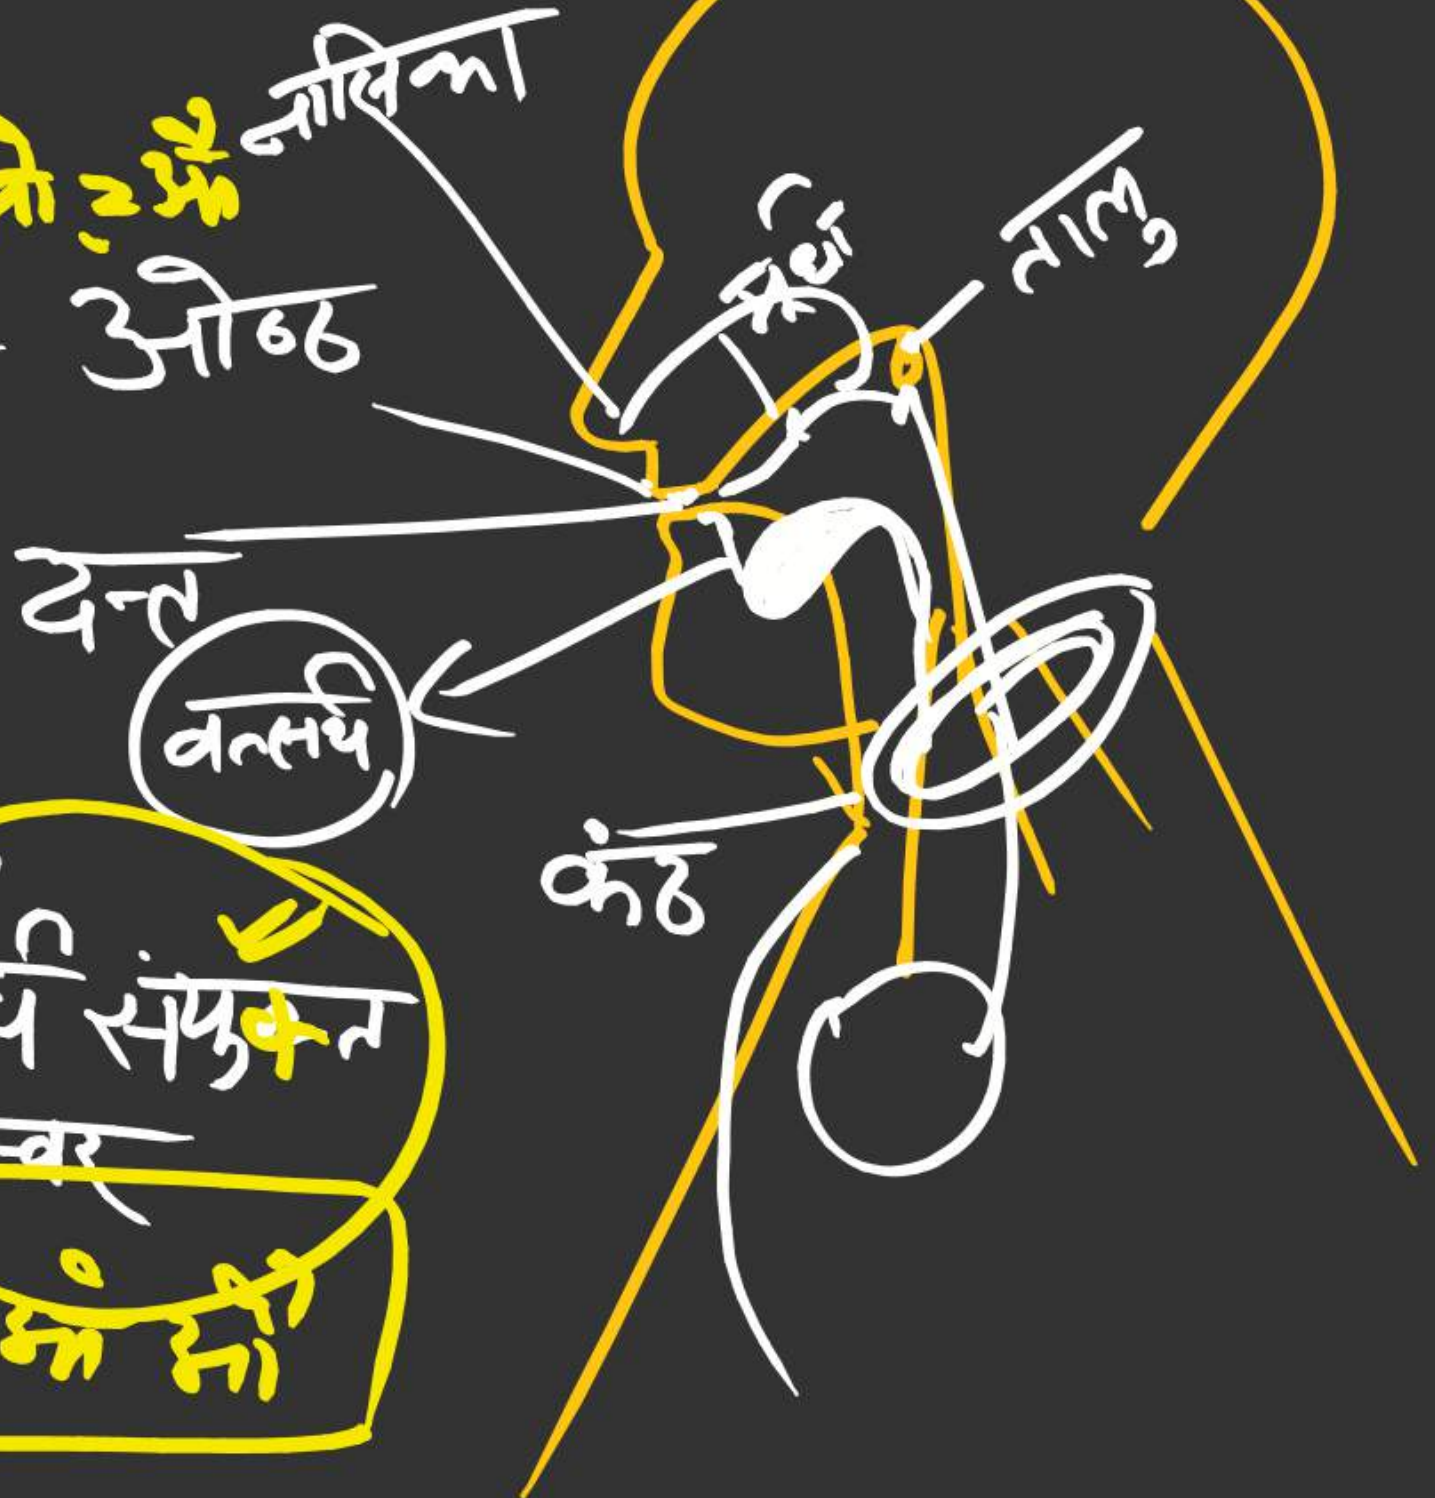 नासिका
ओष्ठ
मूर्धा
तालु
दन्त
वर्त्सय
कंठ
संयुक्त
स्वर